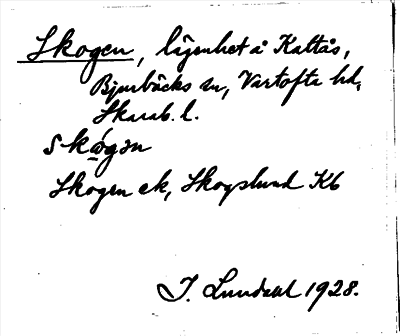 Skogen, lägenhet å Kaltås,
Bjurbäcks sn, Vartofta hd,
Skarab. l.
sko̱gən
Skogen ek, Skogslund Kb
J. Lundahl 1928.